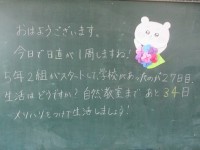 おはようございます。
今日で日直が1周しますね!
5年2組がスタートして、学校があったのが27日目。
生活はどうですか? 自然教室まで あと34日
メリハリをつけて生活しましょう!